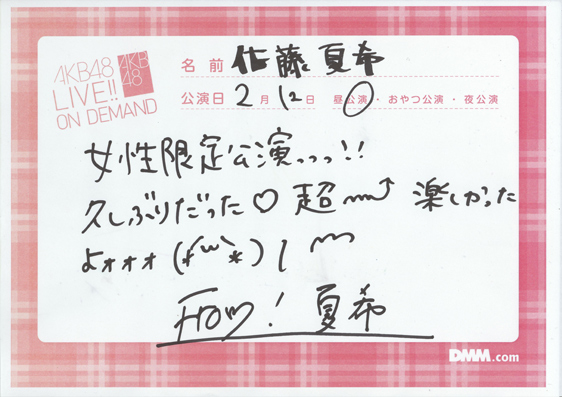 AKB48
LIVE!!
ON DEMAND
AKB
48
名前 佐藤夏希
公演日 2月12日 昼公演・おやつ公演・夜公演
女性限定公演っっっ!!
久しぶりだった♡ 超〰↑ 楽しかった
よォォォ (*´ω`*)ノ 〰
From! 夏希
DMM.com